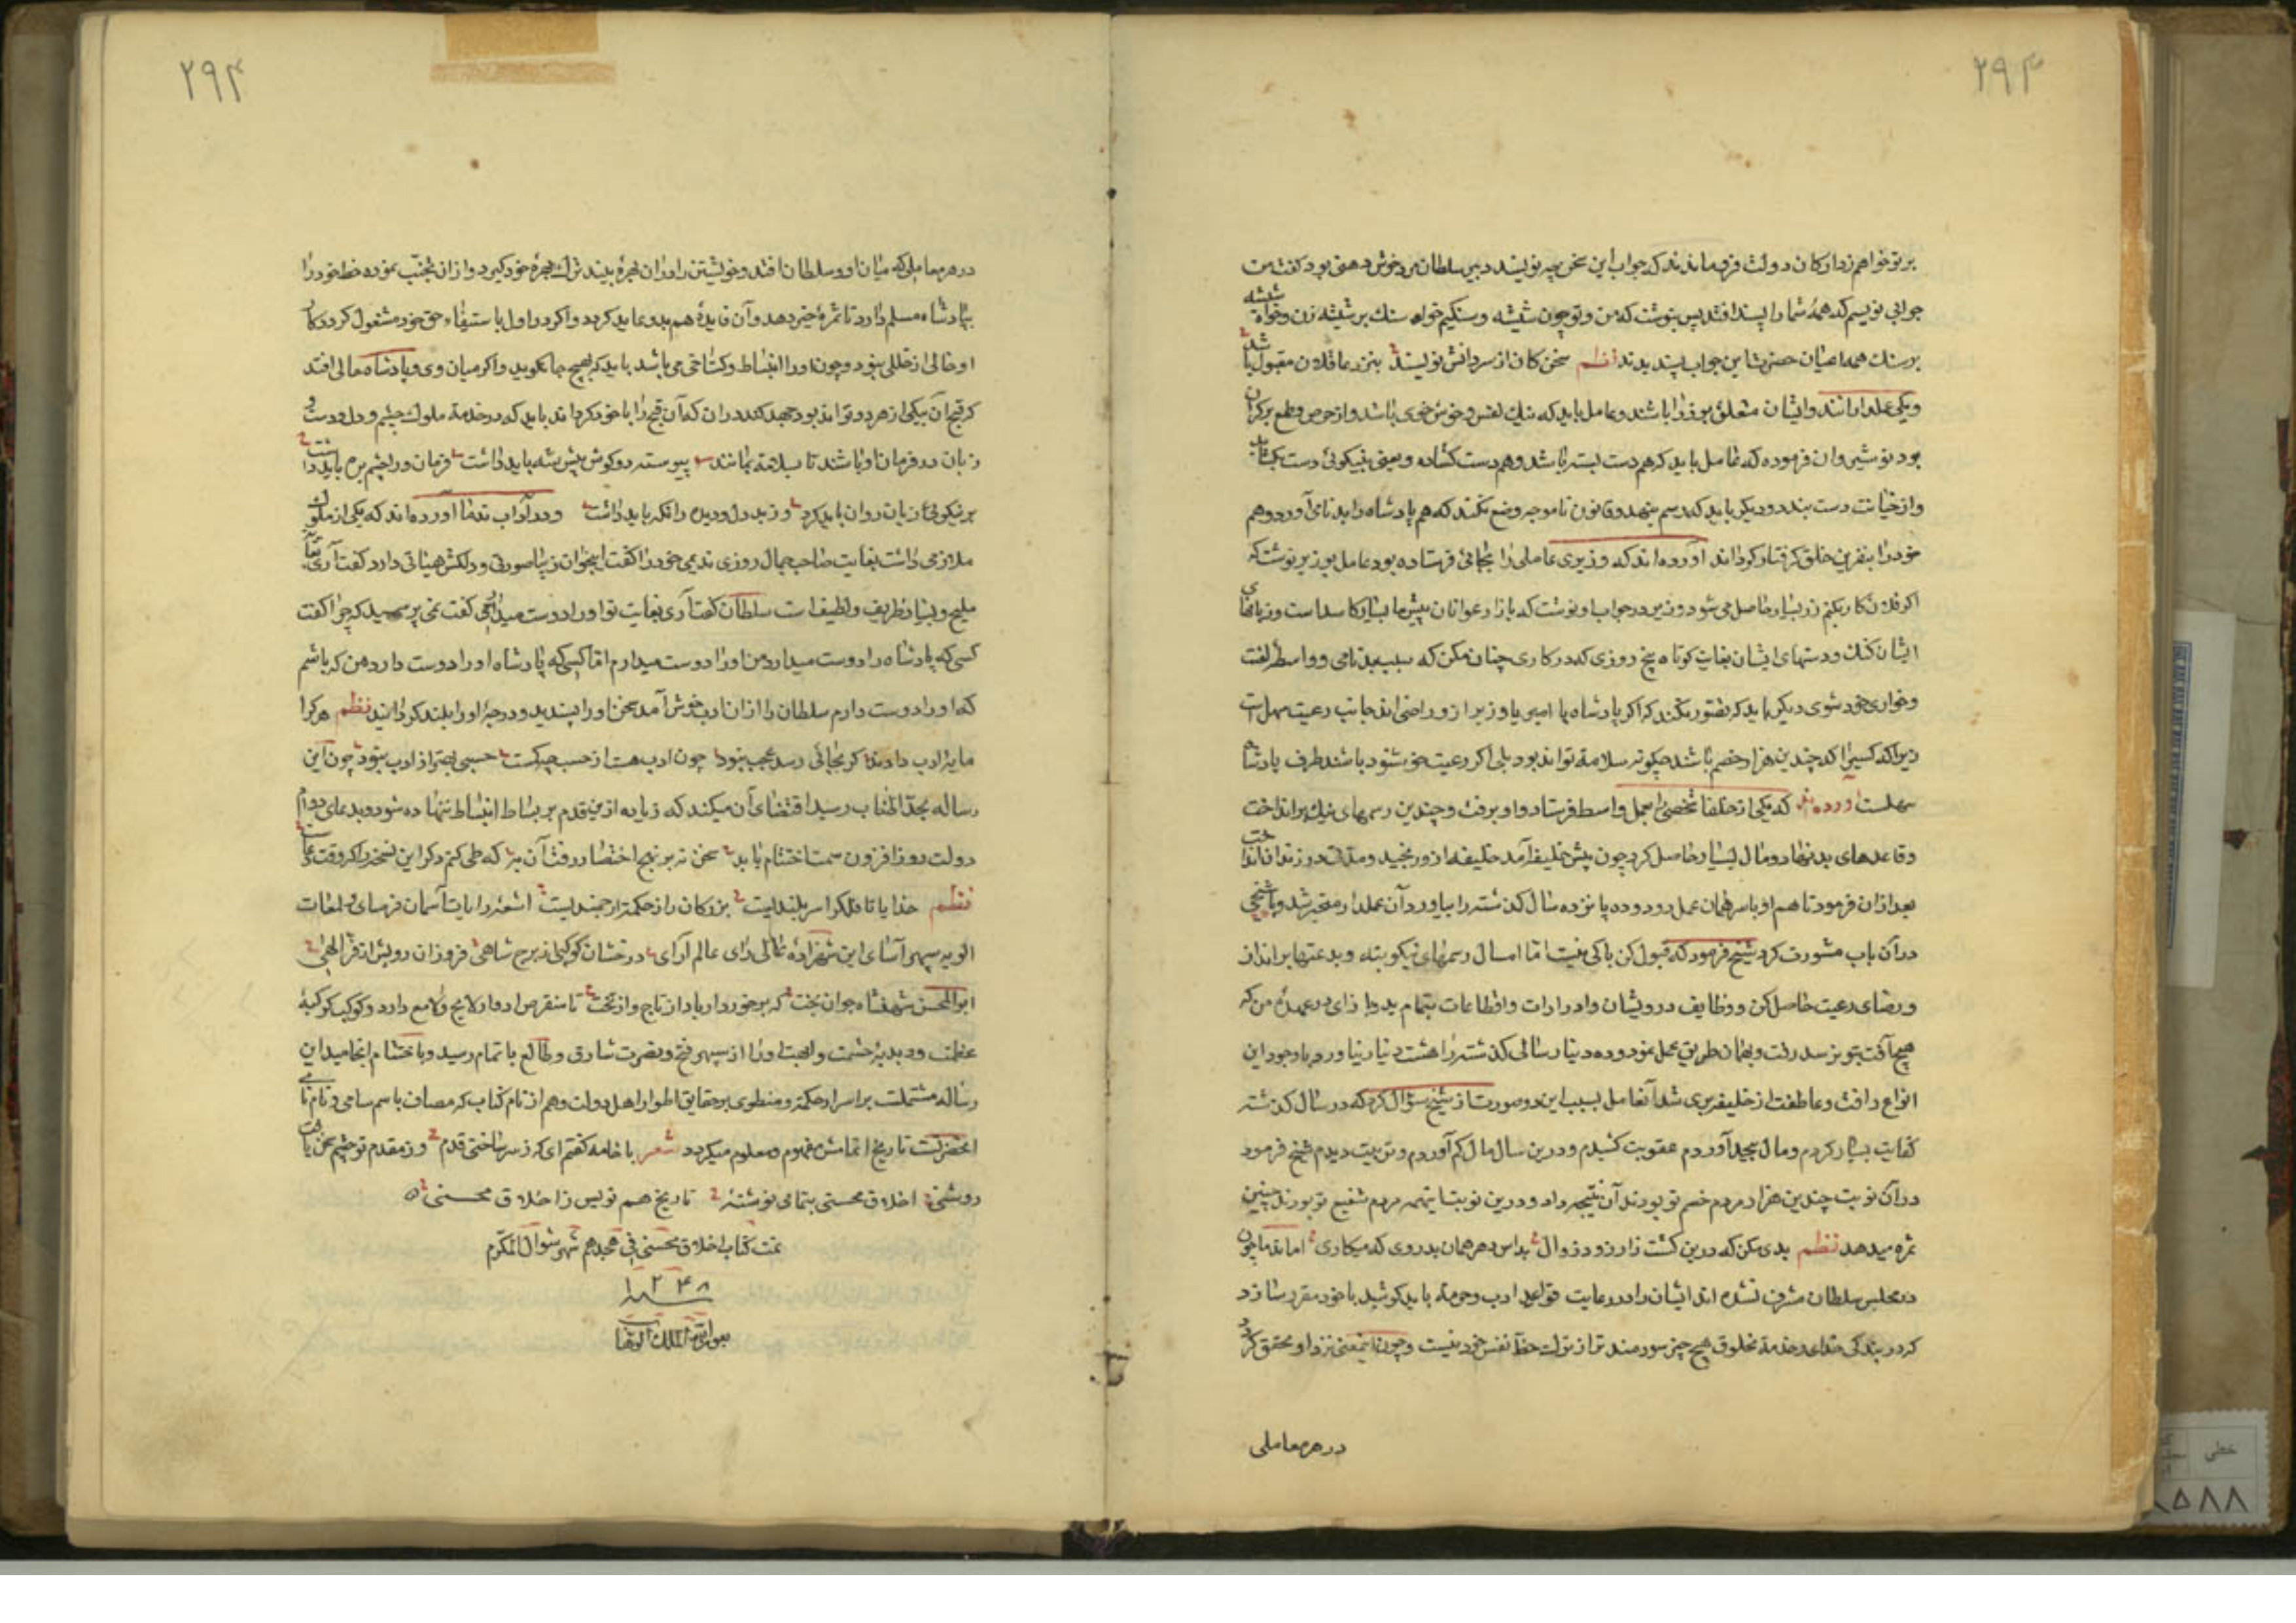 ۲۹۳
بر تو خواهم زد ارکان دولت فرو ماندند که جواب این سخن چه نویسند دبیر سلطان مردخوش ذهن بود گفت من
جوابی نویسم که همهٔ شما را پسند افتد پس بنوشت که من و تو چون شیشه و سنگیم خواه سنک بر شیشه زن و خواه شیشه
بر سنک همه اعیان حضرت این جواب پسندیدند نظم سخن کان از سر دانش نویسند بنزد عاقلان مقبول باشد
و یکی عملدارانند و ایشان متعلق بوزرا باشند و عامل باید که نیک نفس و خوش خوی باشد و از حرص و طمع بر کران
بود نوشیروان فرموده که عامل باید که هم دست بسته باشد و هم دست کشاده و یعنی بنیکوئی دست بکشاید
و از خیانت دست ببندد و دیکر باید که رسم بد ننهد و قانون نا موجه وضع نکند که هم پادشاه را بد نامی آورد و هم
خود را بنفرین خلق کرفتار کرداند آورده اند که وزیری عاملی را بجائی فرستاده بود عامل بوزیر نوشت که
اکر فلان کار بکنم زر بسیار حاصل می شود وزیر در جواب او نوشت که بازار عوانان پیش ما بسیار کاسد است و زبانهای
ایشان کنک و دستهای ایشان بغایت کوتاه پنج روزی که در کاری چنان مکن که سبب بدنامی و واسطهٔ لعنت
و خواری خود شوی دیکر باید که تصور نکند که اکر پادشاه یا امیر یا وزیر از و راضی اند جانب رعیت سهل است
زیرا که کسیرا که چندین هزار خصم باشد چکونه سلامة تواند بود بلی اکر رعیت خوشنود باشند طرف پادشاه
سهلست آورده اند که یکی از خلفا شخصی را بعمل واسط فرستاد و او برفت و چندین رسمهای نیک برانداخت
و قاعدهای بد بنهاد و مال بسیار حاصل کرد چون پیش خلیفه آمد خلیفه از و رنجید و مدت در زندان انداخت
بعد از آن فرمود تا هم او باسر همان عمل رود و ده پانزده سال کذشته را بیاورد آن عملدار متحیر شد و با شیخی
در آن باب مشورت کرد شیخ فرمود که قبول کن باکی نیست اما امسال رسمهای نیکو بنه و بدعتها برانداز
و رضای رعیت حاصل کن و وظایف درویشان و ادرارات و اقطاعات بتمام بده و از ای در عهدهٔ من که
هیچ آفت بتو نرسد رفت و بهمان طریق عمل نمود و ده دینار سالی کذشته را هشت دینار نیاورد و باوجود این
انواع رافت و عاطفت از خلیفه بری شد آنعامل بسبب این دو صورت از شیخ سؤال کرد که در سال کذشته
کفایت بسیار کردم و مال بیحد آوردم عقوبت کشیدم و درین سال مال کم آوردم و تربیت دیدم شیخ فرمود
در آن نوبت چندین هزار مردم خصم تو بودند آن نتیجه داد و درین نوبت اینهمه مردم شفیع تو بودند چنین
ثمره میدهد نظم بدی مکن که درین کشت زار زود زوال بداس دهر همان بدروی که میکاری اما ندما چون
در مجلس سلطان مشرف شده اند ایشان را در رعایت قواعد ادب و حرمة باید کوشید با خود مقرر سازد
که در بندکی خدا و خدمة مخلوق هیچ چیز سودمند تر از ترک حظ نفس خود نیست و چون اینمعنی نزد او محقق کردد
در هر معاملی
۲۹۴
در هر معاملی که میان او و سلطان افتد و خویشتن را در آن بهرهٔ بیند ترک بهرهٔ خود کیرد و از ان تجنّب نموده حظ خود را
بپادشاه مسلم دارد تا ثمرهٔ خیر دهد و آن فایدهٔ هم بدو عاید کردد و اکر در اول باستیفاء حق خود مشغول کردد کار
او خالی از خللی نبود و چون او را انبساط و کستاخی می باشد باید که بهیچ جا نکوید و اکر میان وی و پادشاه حالی افتد
که قبح آن بیکی از هر دو تواند بود جهد کند در ان که آن قبح را با خود کرداند باید که در خدمة ملوک چشم و دل و دست و
زبان در فرمان او باشد تا بسلامة بمانند پیوسته دو کوش پیش شه باید داشت فرمان ورا چشم بره باید داشت
بر نیکوئی زبان روان باید کرد وز بد دل و دیده را نکه باید داشت و در آداب ندما آورده اند که یکی از ملوک
ملازمی داشت بغایت صاحب جمال روزی ندیمی خود را کفت اینجوان زیبا صورتی و دلکش هیئاتی دارد کفت آری بغایت
ملیح و بسیار ظریف و لطیف است سلطان کفت آری بغایت تو او را دوست میداری کفت نی پرسید که چرا کفت
کسی که پادشاه را دوست میدارد من او را دوست میدارم اما کسی که پادشاه او را دوست دارد من که باشم
که او را دوست دارم سلطان را از ان ادب خوش آمد سخن او را پسندید و درجهٔ او را بلند کردانید نظم هر کرا
مایهٔ ادب دادند کر بجائی رسد عجب نبود چون ادب هست از حسب چه کمست حسبی بهتر از ادب نبود چون این
رساله بحدّ اطناب رسید اقتضای آن میکند که زیاده ازین قدم بر بساط انبساط ننهاده شود و بدعای دوام
دولت روز افزون سمت اختتام یابد سخن نه بر نهج اختصار رفت آن به که طی کنم ذکر این نسخه را که وقت دعاست
نظم خدایا تا فلک را سر بلندیست بزرکان را ز حکمت ارجمندیست اشعهٔ رایات آسمان فرسای و لمعات
الویه سپهر آسای این شهزادهٔ عالی رای عالم آرای درخشان کوکبی ز برج شاهی فروزان رویش از فرّ الهی
ابو المحسن شهنشاه جوان بخت که برخوردار باد از تاج و از تخت تا منقرض ادوار لایح و لامع دارد و کوکب کوکبهٔ
عظمت و دبدبهٔ حشمت و ابهت او را از سپهر فتح و نصرت شارق و طالع باتمام رسید و باختتام انجامید این
رساله مشتملست بر اسرار حکمت و منطوی بر حقایق اطوار اهل دولت و هم از نام کتاب که مضاف باسم سامی و نام نامی
آنحضرتست تاریخ اتمامش مفهوم و معلوم میکردد شعر با خامه کفتم ای که ز سر ساختی قدم وز مقدم تو چشم سخن یافت
روشنی اخلاق محسنی بتمامی نوشته تاریخ هم نویس ز اخلاق محسنی
تمت کتاب اخلاق محسنی فی هجدهم شهر شوال المکرم
سنه ۱۲۴۸
بعون الله الملک الوهاب
خطی
۸۵۸۸